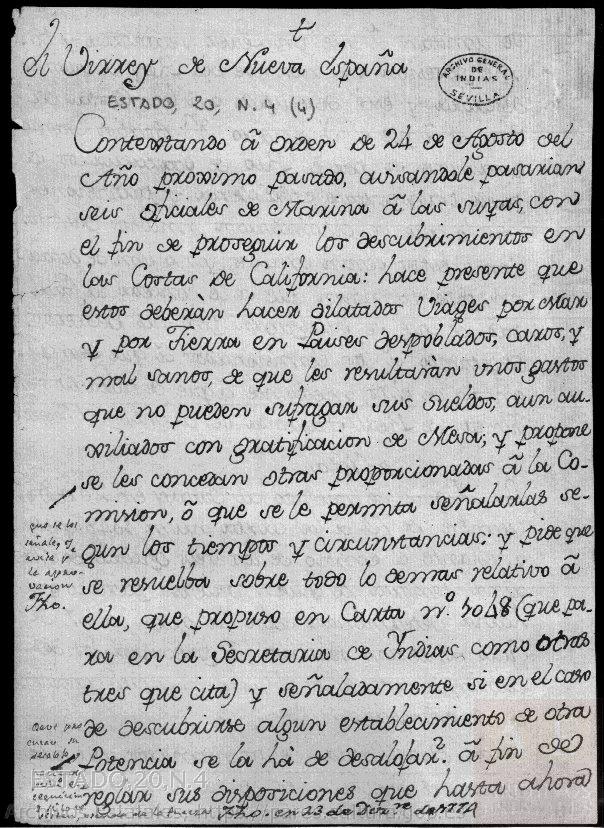 t
El Virrey de Nueva España
ARCHIVO GENERAL
DE
INDIAS
SEVILLA
ESTADO, 20, N.4 (4)
Contextando â orden de 24 de Agosto del
Año proximo pasado, avisandole pasarian
seis Oficiales de Marina â las suyas, con
el fin de proseguir los descubrimientos en
las Costas de California: hace presente que
estos deberàn hacer dilatados Viages por Mar
y por Tierra en Paises despoblados, caros, y
mal sanos, de que les resultaràn unos gastos
que no pueden sufragar sus Sueldos, aun au-
xiliados con gratificacion de Mesa; y propone
se les concedan otras proporcionadas â la Co-
mision, ô que se le permita señalarlas se-
gun los tiempos y circunstancias: y pide que
se resuelba sobre todo lo demas relativo â
ella, que propuso en Carta nº. 1048 (que pa-
ra en la Secretaria de Yndias como otras
tres que cita) y señaladamente si en el caso
de descubrirse algun establecimiento de otra
Potencia se la hà de desalojar? â fin de
reglar sus disposiciones que hasta ahora
que se los
señale, y
la apro-
vacion
Fho.
Que pro-
ESTADO,20,N.4
Fho. en 23 de de 1774